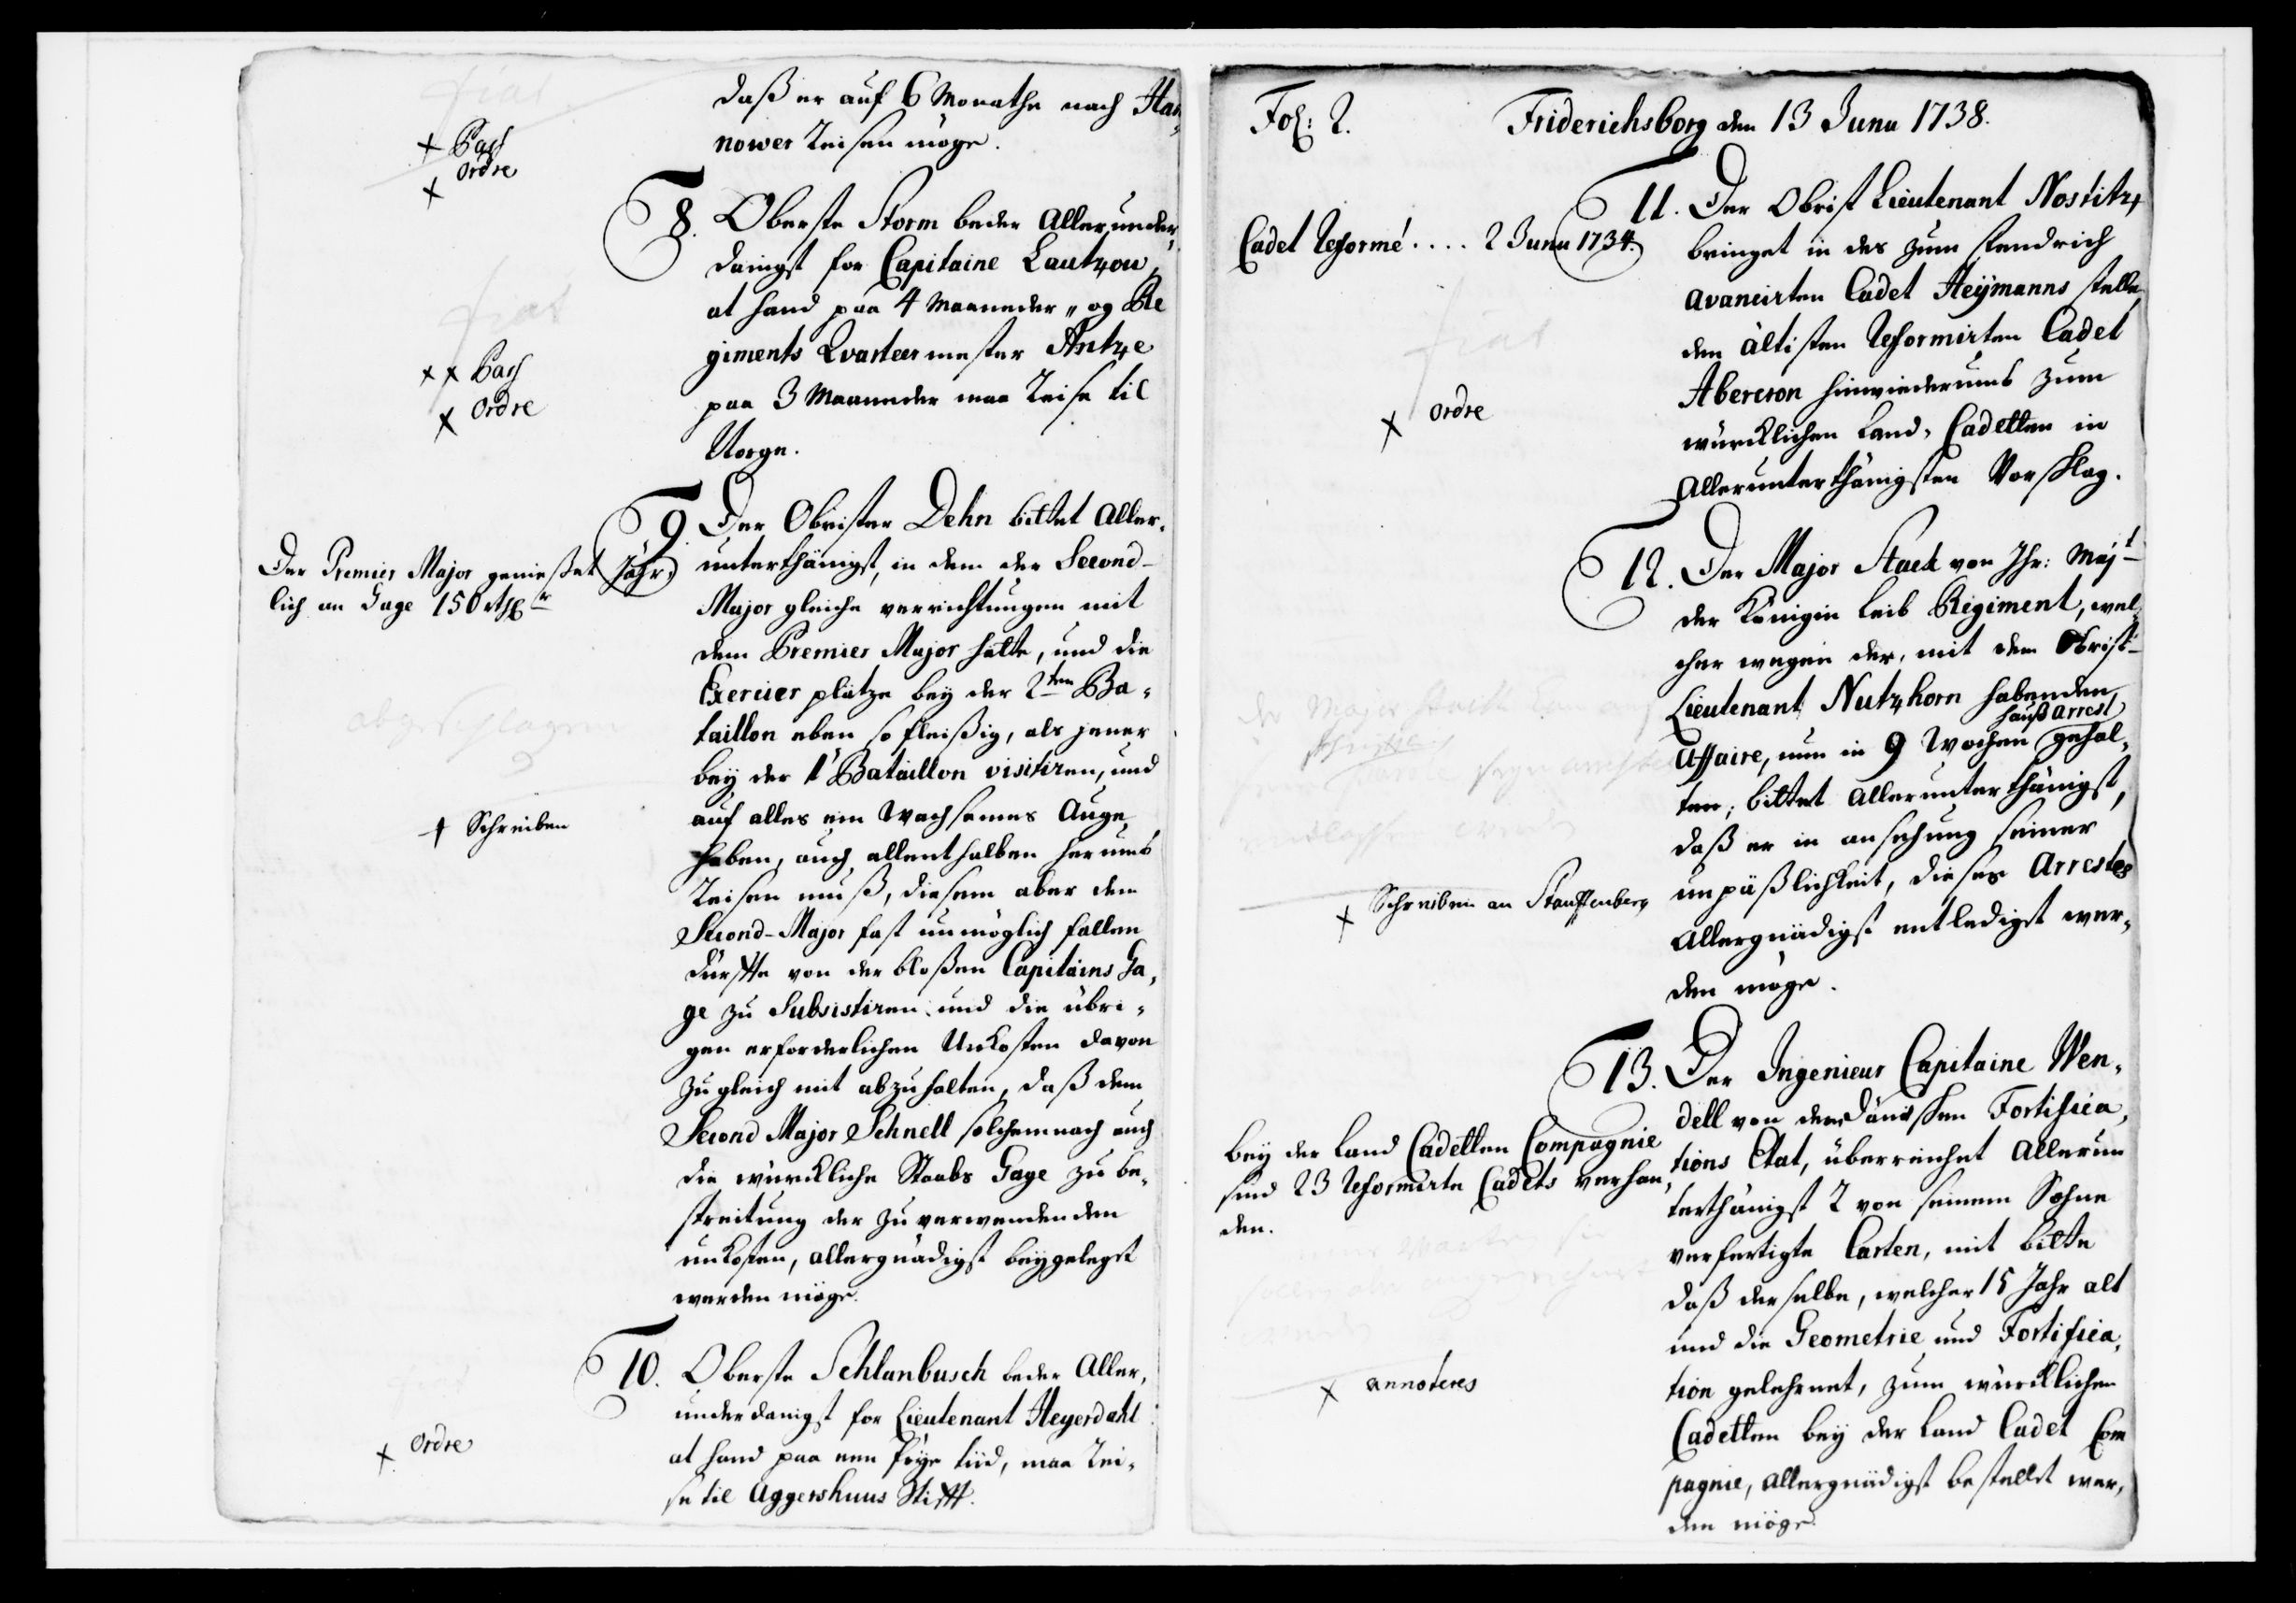 daß er auf 6 Monathe nach Han„
nower Reisen möge.
fiat
+ Paß
+ Ordre
8. Oberste Storm beder Allerunder„
danigst for Capitaine Lautzow,
at hand paa 4 Maaneder „ og Re
giments Qvarteermester Antze
paa 3 Maaneder maa Reise til
Norge.
fiat
+ + Paß
+ Ordre
9. Der Obrister Dehn bittet Aller„
unterthänigst, in dem der Second-
Major gleiche verrichtungen mit
dem Premier Major hätte, und die
Exercier plätze bey der 2ten Ba„
taillon eben so fleißig, als jener
bey der 1' Bataillon visitiren, und
auf alles ein Wachsames Auge
haben, auch allenthalben herumb
Reisen muß, diesem aber dem
Second-Major fast unmöglich fallen
dürffte von der bloßen Capitains Ga„
ge zu Subsistiren und die übri„
gen erforderlichen Unkosten davon
zugleich mit abzuhalten, daß dem
Second Major Schnell solchemnach auch
die würckliche Staabs Gage zu be„
streitung der zu verwendenden
unkosten, allergnädigst beygelegt
werden möge.
Der Premier Major genießet Jähr„
lich an Gage 150 Rthlr
abgeschlagen
+ Schreiben
10. Oberste Schlanbusch beder Aller„
underdanigst for Lieutenant Heyerdahl
at hand paa een föye tiid, maa Rei„
se til Aggershuus Stifft.
+ Ordre
Fol: 2.
Friderichsborg den 13 Junii 1738.
11. Der Obrist Lieutenant Nostitz,
bringet in des zum fendrich
avancirten Cadet Heÿmanns stelle,
den ältisten Reformirten Cadet
Abercron hinwiederumb zum
würcklichen Land-Cadetten in
Allerunterthänigsten Vorschlag.
Cadet Reformé .... 2 Junii 1734.
fiat
+ Ordre
12. Der Major Stack von Ihr: Majt
der Königin Leib Regiment, wel„
cher wegen der, mit dem Obrist-
Lieutenant Nutzhorn habenden
Affaire, nun in 9 Wochen hauß arrest gehal„
ten, bittet Allerunterthänigst,
daß er in ansehung seiner
unpäßlichkeit, dieses Arrestes
Allergnädigst entlediget wer„
den möge.
der Major Stack kan auf
+ Schreiben an Stauffenberg
13. Der Ingenieur Capitaine Wen„
dell von der Dänischen Fortifica„
tions Etat, überreichet Allerun
terthänigst 2 von seinem Sohne
verfertigte Carten, mit bitte
daß derselbe, welcher 15 Jahr alt
und die Geometrie und Fortifica„
tion gelehrnet, zum würcklichen
Cadetten bey der Land Cadet Com
pagnie, allergnädigst bestellet wer„
den möge.
bey der Land Cadetten Compagnie
sind 23 Reformirte Cadets verhan„
den.
+ annoteres